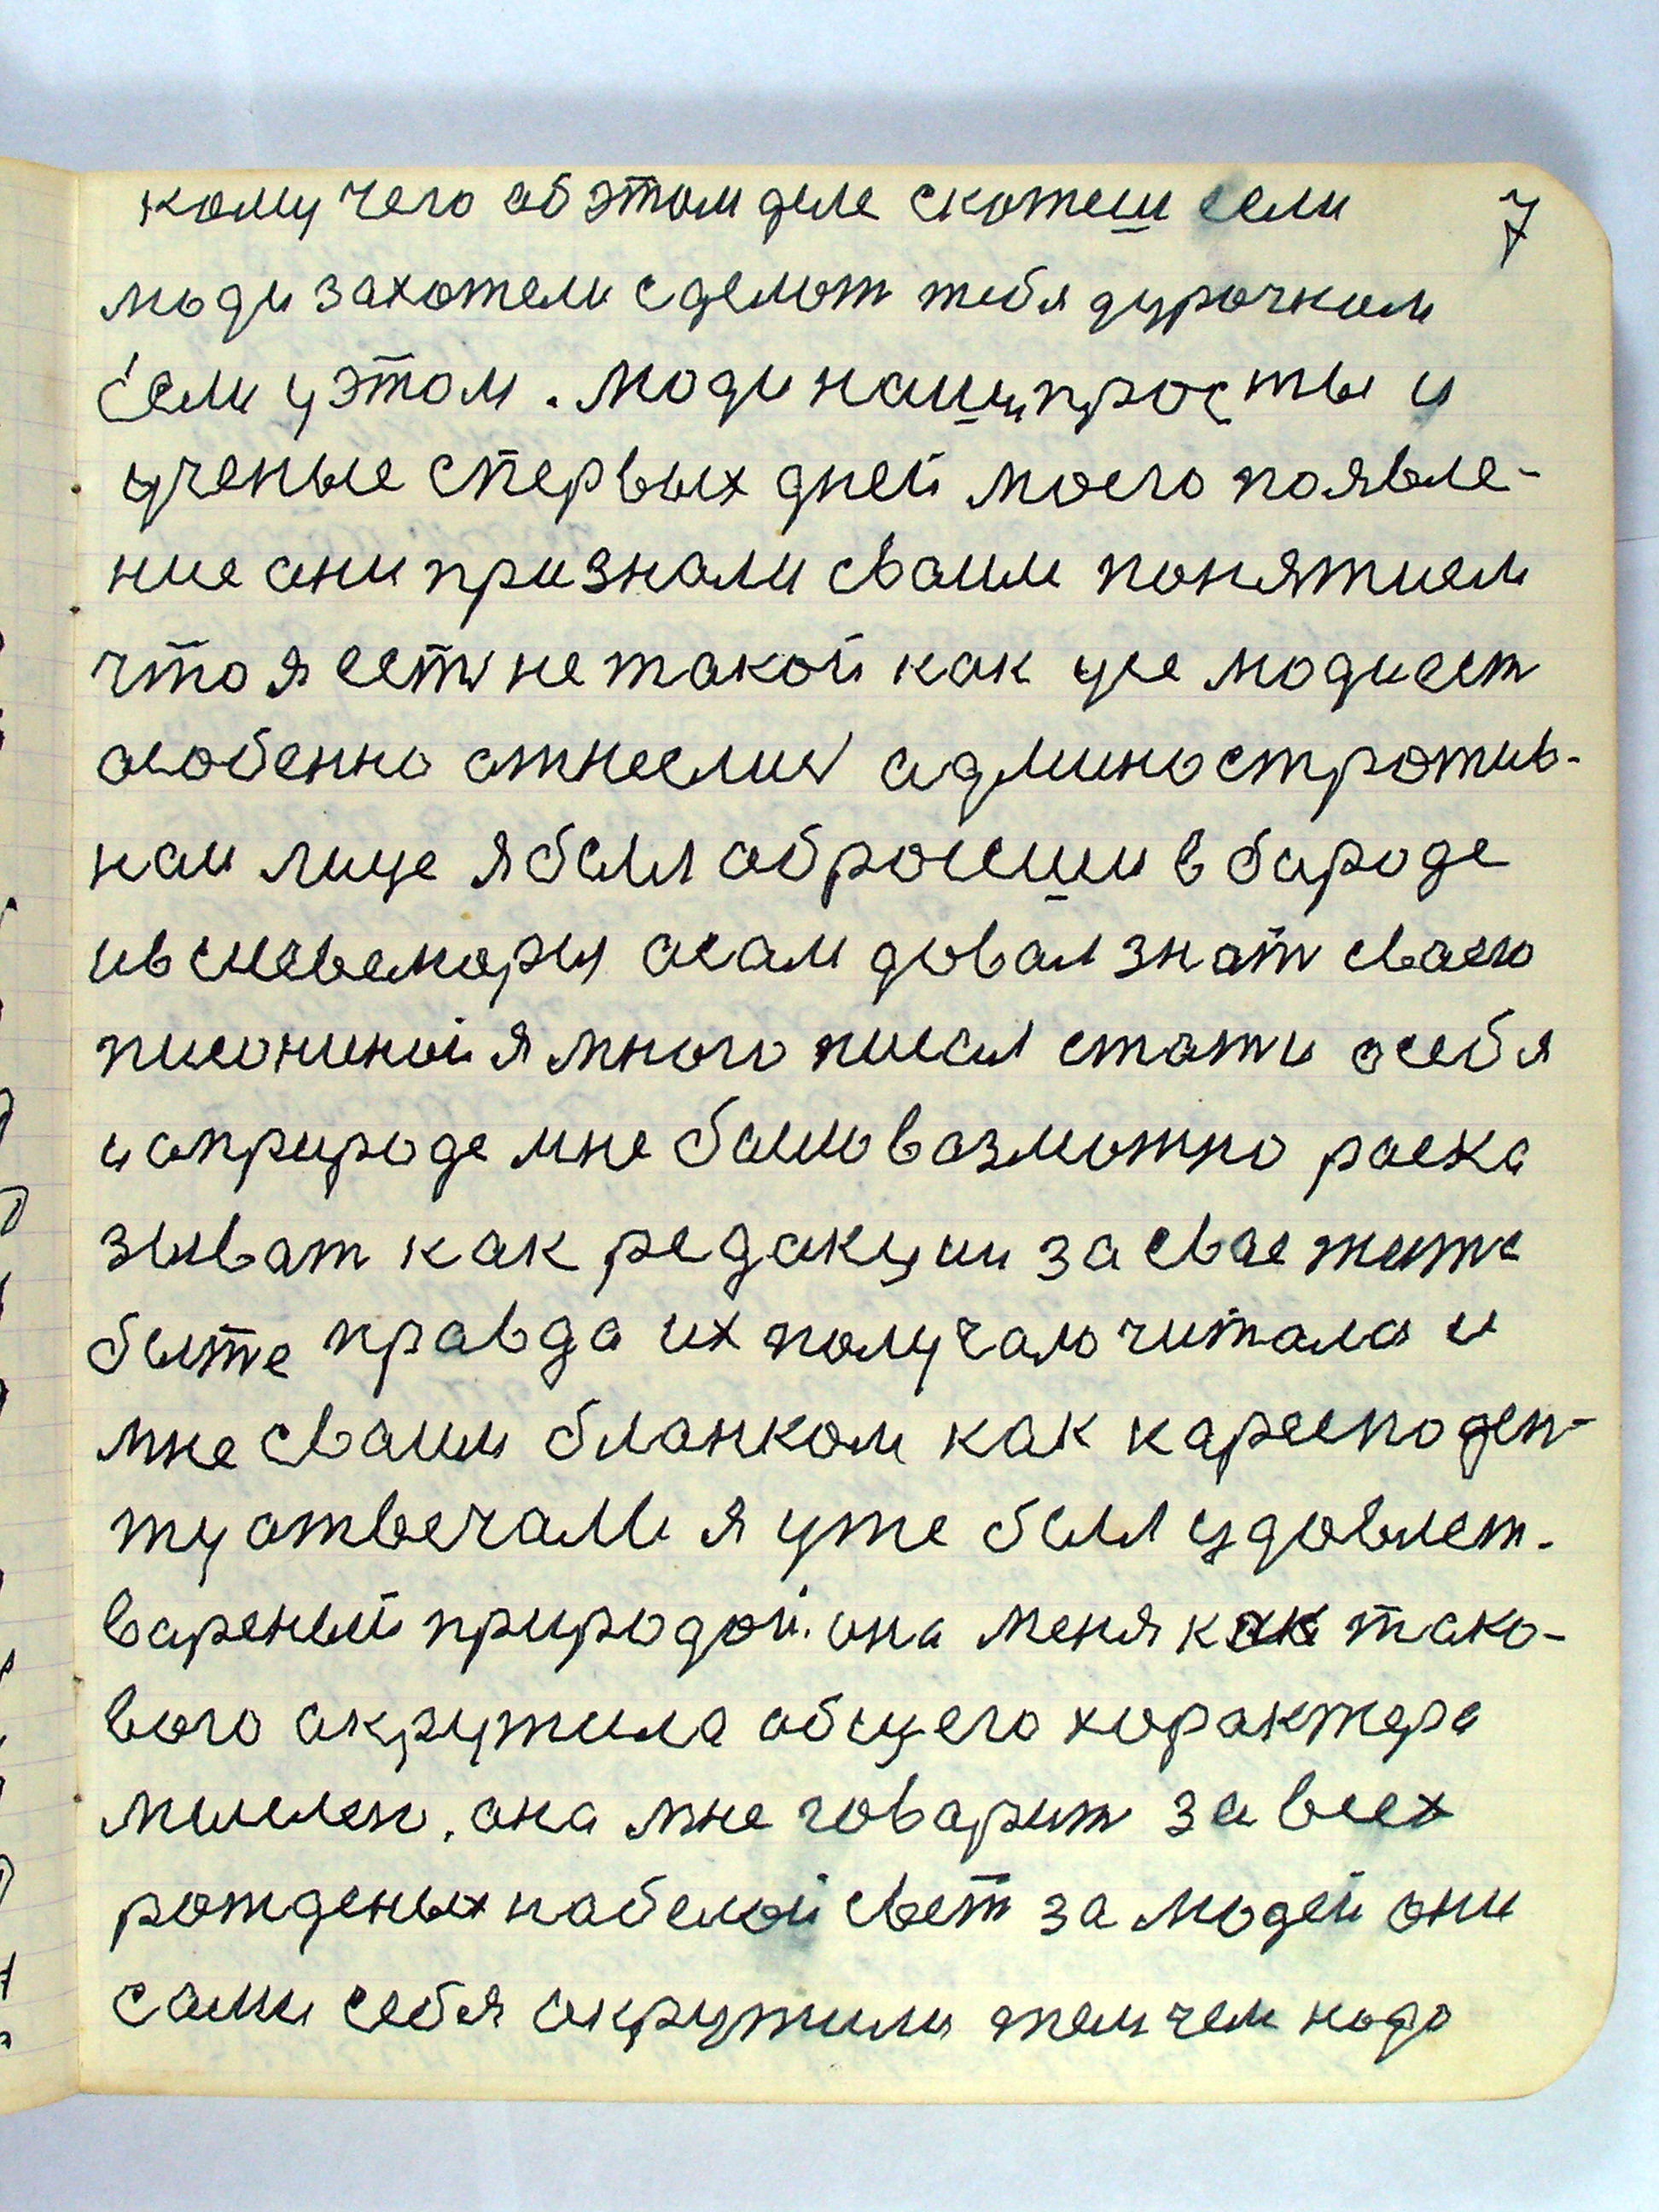 кому чего обэтом деле скажеш если 7
люди захотели сделат тебя дурачком
если уэтом. люди нашипросты и
ученые спервых дней моего появле-
ние ани признали сваим понятием
что я есть не такой как усе людиест
асобенно атнеслись админостротив-
нам лице я был абросши в бароде
ив
асам довал знат сваею
писониной я много писал стати осебя
и априроде мне было возможно раска
зыват как редакции за свае жите
быте правда их получаю читала и
мне сваим бланком как кареспонден-
ту атвечали я уже был удовлет-
вареный природой. она меня как тако-
вого акружила общего характера
мыслею. ана мне говарит за всех
рожденых набелой свет за людей они
сами себя акружили тем чем надо